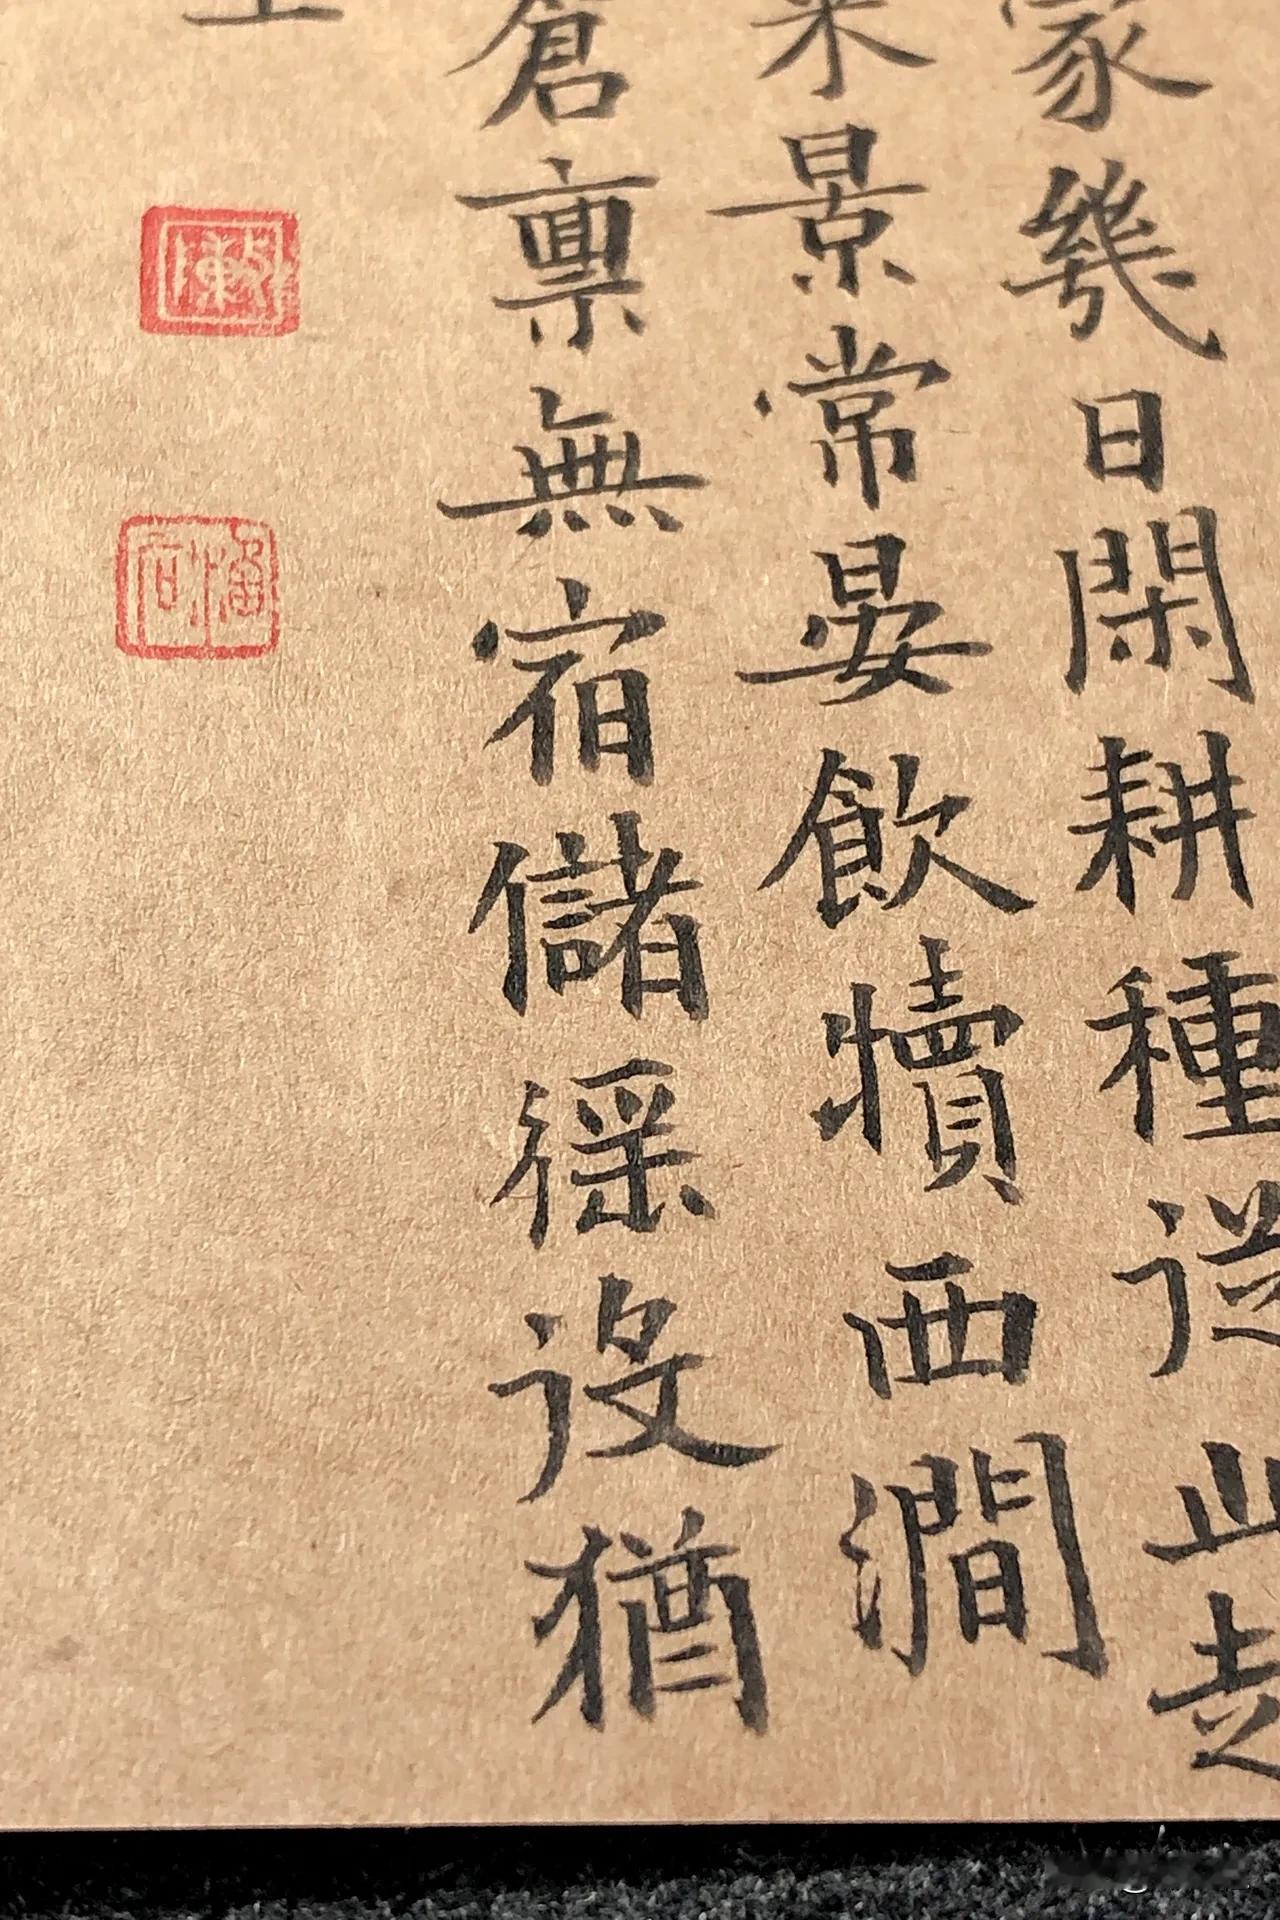 家幾日閑耕種從此起
來景常晏飲犢西澗
倉禀無宿儲徭役猶